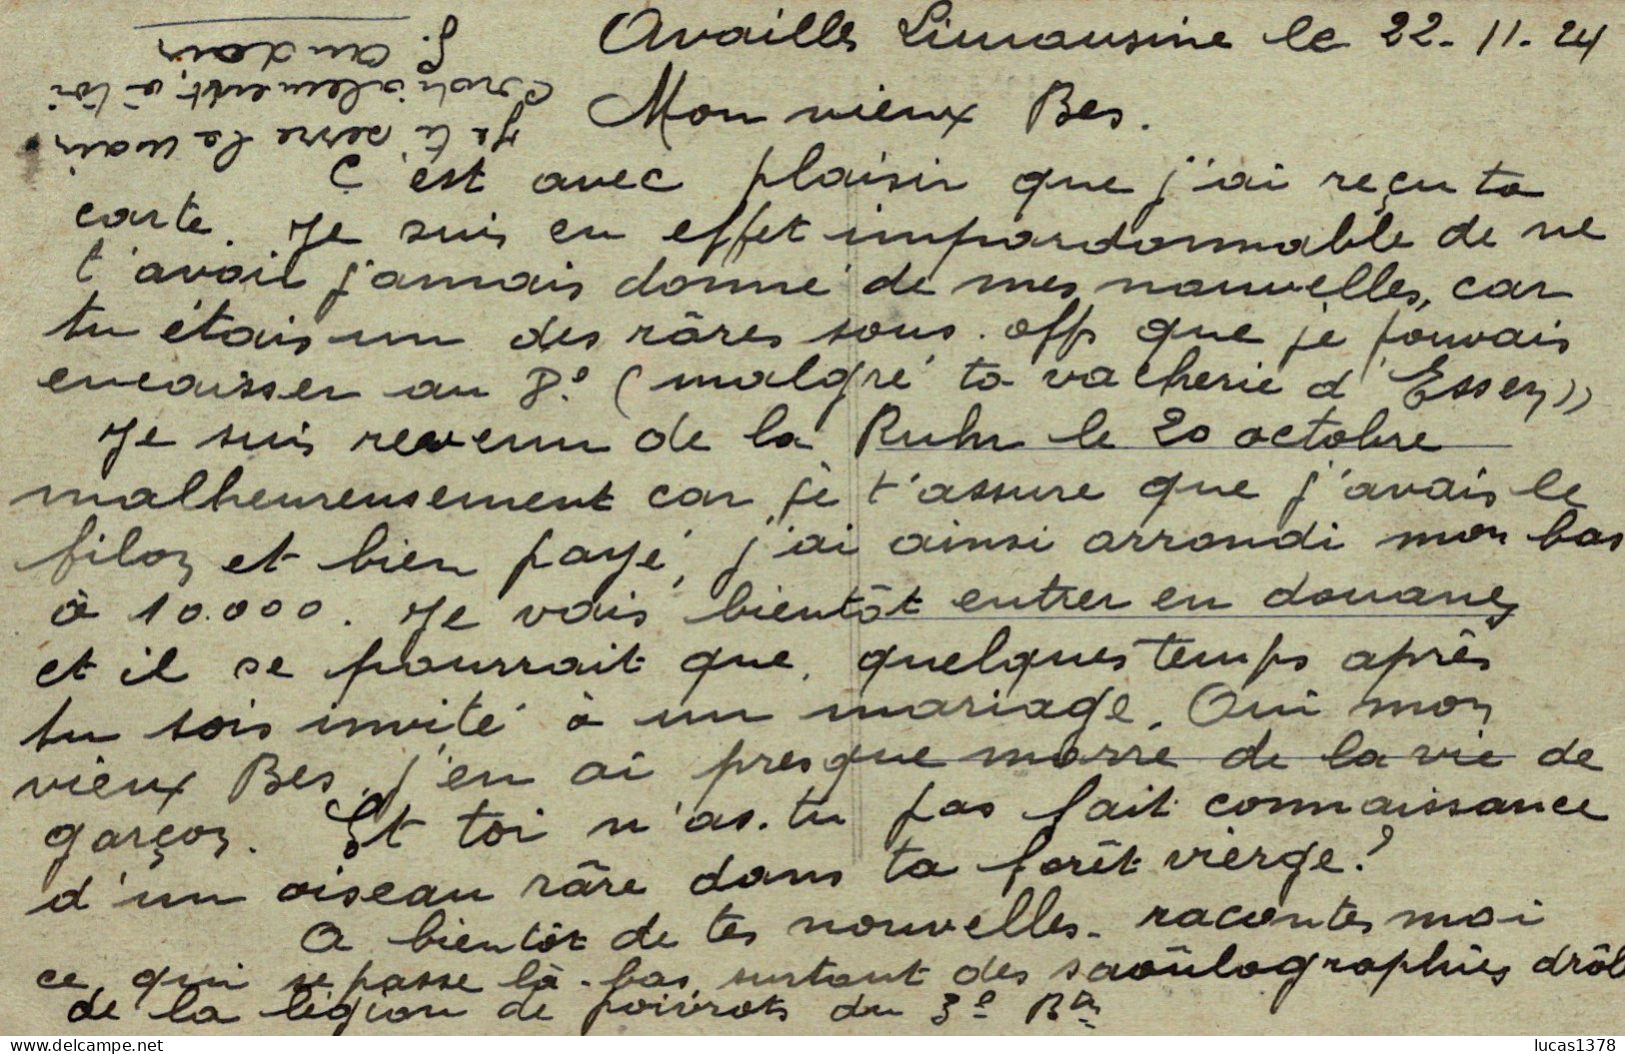 Availles Limousine le 22-11-24
Mon vieux Bes.
C'est avec plaisir que j'ai reçu ta
carte. Je suis en effet impardonnable de ne
t'avoir jamais donné de mes nouvelles, car
tu étais un des râres sous-offs que je pouvais
encaisser au 8e (malgré ta vacherie d'Essen))
Je suis revenu de la Ruhr le 20 octobre
malheureusement car je t'assure que j'avais le
filon et bien payé, j'ai ainsi arrondi mon bas
à 10.000. Je vais bientôt entrer en douanes
et il se pourrait que, quelques temps après
tu sois invité à un mariage. Oui mon
vieux Bes, j'en ai presque marre de la vie de
garçon. Et toi n'as-tu pas fait connaissance
d'un oiseau râre dans ta forêt vierge?
A bientôt de tes nouvelles. racontes moi
ce qui se passe là-bas, surtout des saoûlographies drôl
de la légion de poivrots du 3e Bn
Je te serre la main.
Cordialement à toi
J. Audoir
lucas1378